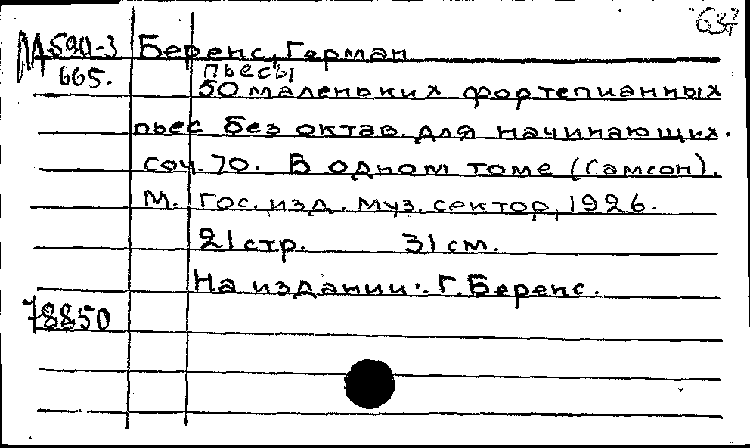 637
М 590-3 Беренс, Герман
665. пьесы
50 маленьких фортепианных
пьес без октав для начинающих.
соч. 70. В одном томе (Самсон).
М. Гос. изд. муз. сектор, 1926.
21 стр. 31 см.
На издании: Г. Беренс.
78850